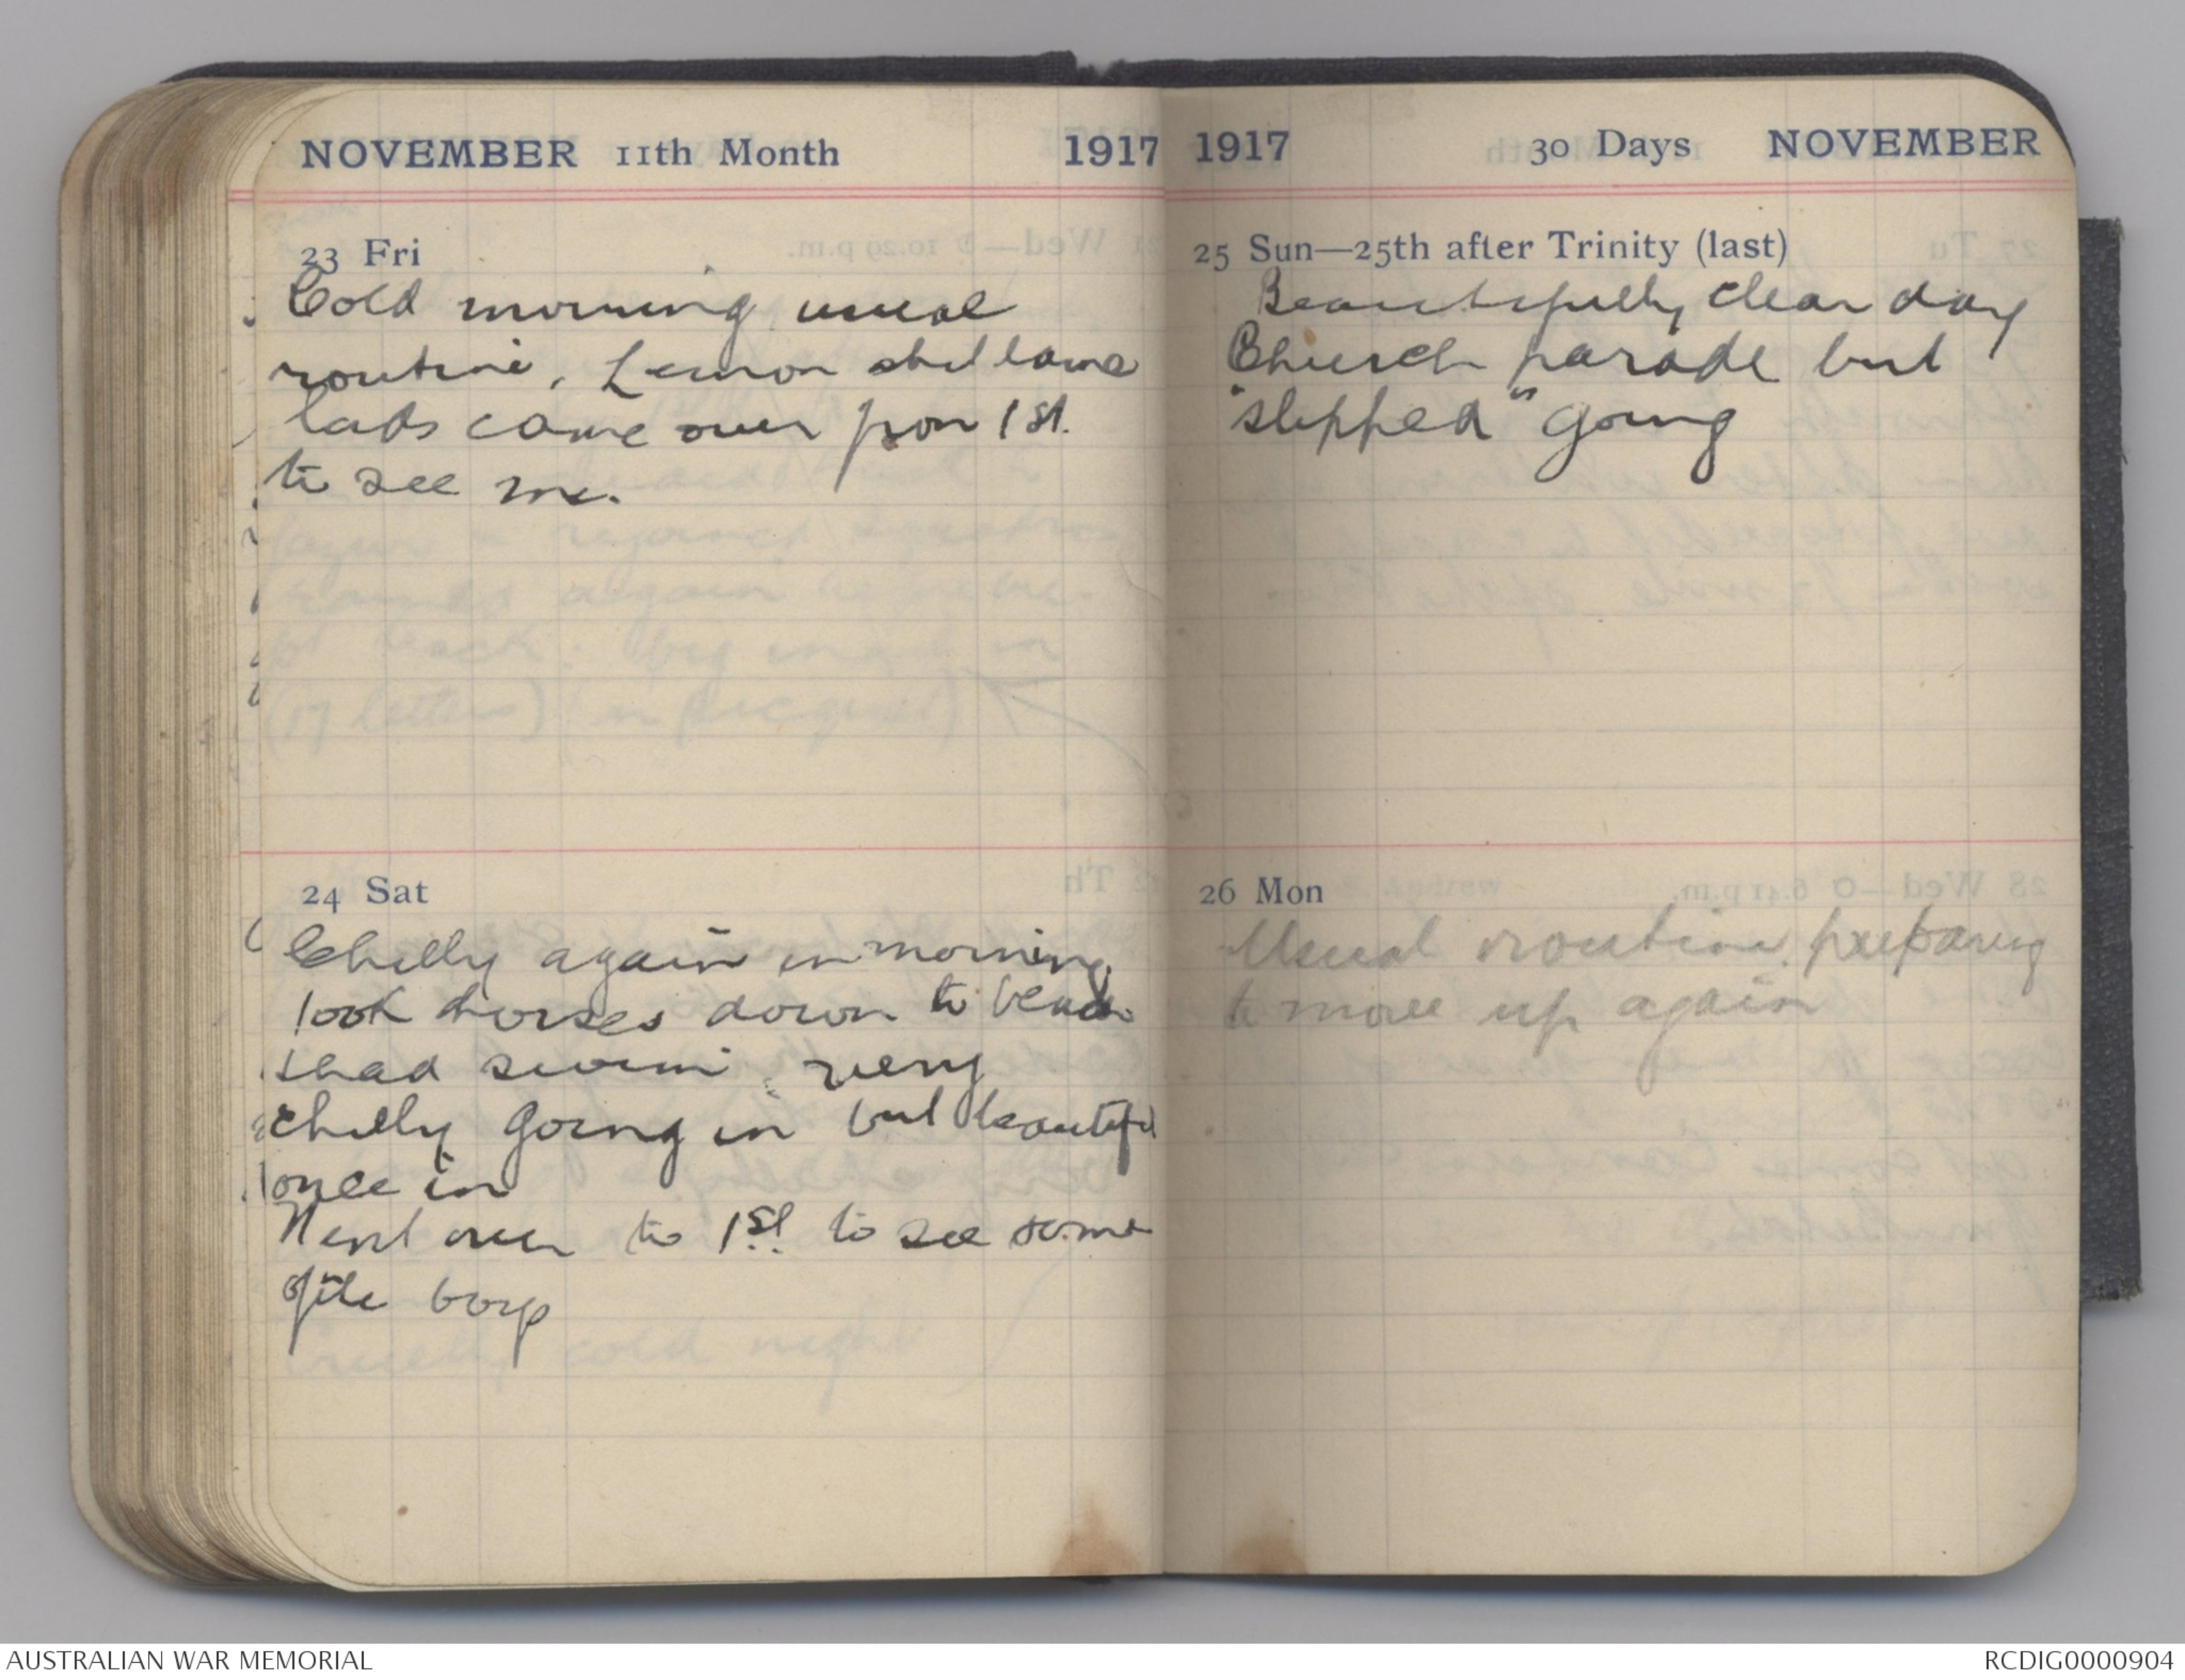 NOVEMBER 11th Month 1917
23 Fri
Cold morning usual
routine, Lemon still lame
lads came over from 1st.
to see me.
24 Sat
Chilly again in morning
took horses down to beach
& had swim very
chilly going in but beautiful
once in
Went over to 1st. to see some
of the boys
1917 30 Days NOVEMBER
25 Sun—25th after Trinity (last)
Beautifully clear day
Church parade but
"slipped" going
26 Mon
Usual routine preparing
to move up again
AUSTRALIAN WAR MEMORIAL
RCDIG0000904